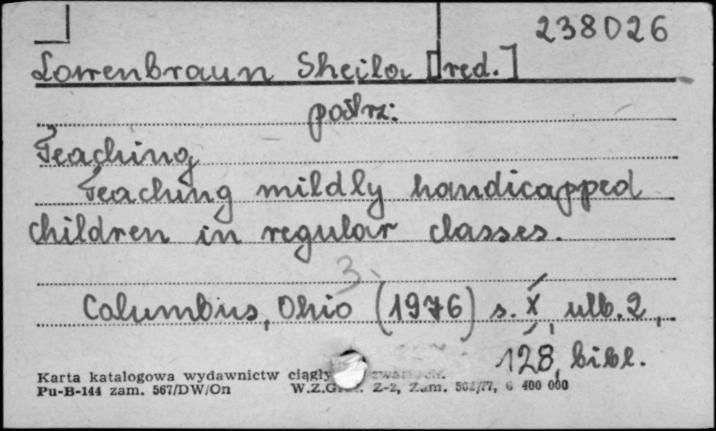 238026
Lowenbraun Sheila [red.]
patrz:
Teaching
Teaching mildly handicapped
children in regular classes.
3.
Columbus, Ohio (1976) s. X, ulb. 2,
128, bibl.
Karta katalogowa wydawnictw ciągły
Pu-B-144 zam. 567/DW/On W.Z.Gr. Z-2, Zam. 502/77, 6 400 000